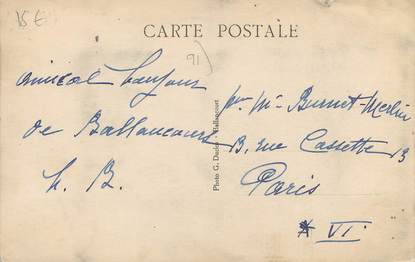 15 €
CARTE POSTALE
91)
amical bonjour
de Ballancourt
h. B.
Photo G. Ballancourt
Mr Burnet-Merlin
13, rue Cassette 13
Paris
VI